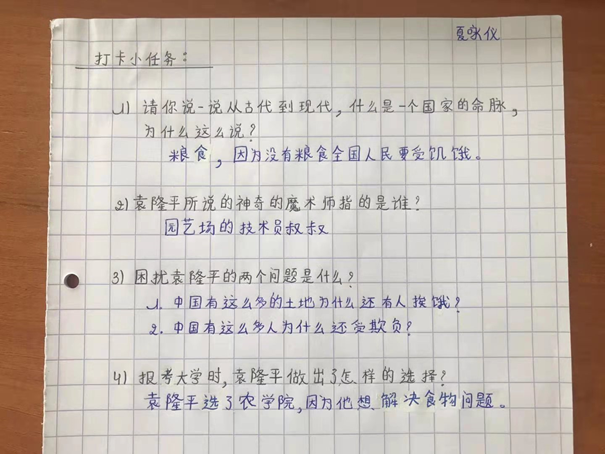 夏咏仪
打卡小任务：
1) 请你说一说从古代到现代，什么是一个国家的命脉，
为什么这么说？
粮食，因为没有粮食全国人民要受饥饿。
2) 袁隆平所说的神奇的魔术师指的是谁？
园艺场的技术员叔叔
3) 困扰袁隆平的两个问题是什么？
1. 中国有这么多的土地为什么还有人挨饿？
2. 中国有这么多人为什么还受欺负？
4) 报考大学时，袁隆平做出了怎样的选择？
袁隆平选了农学院，因为他想解决食物问题。